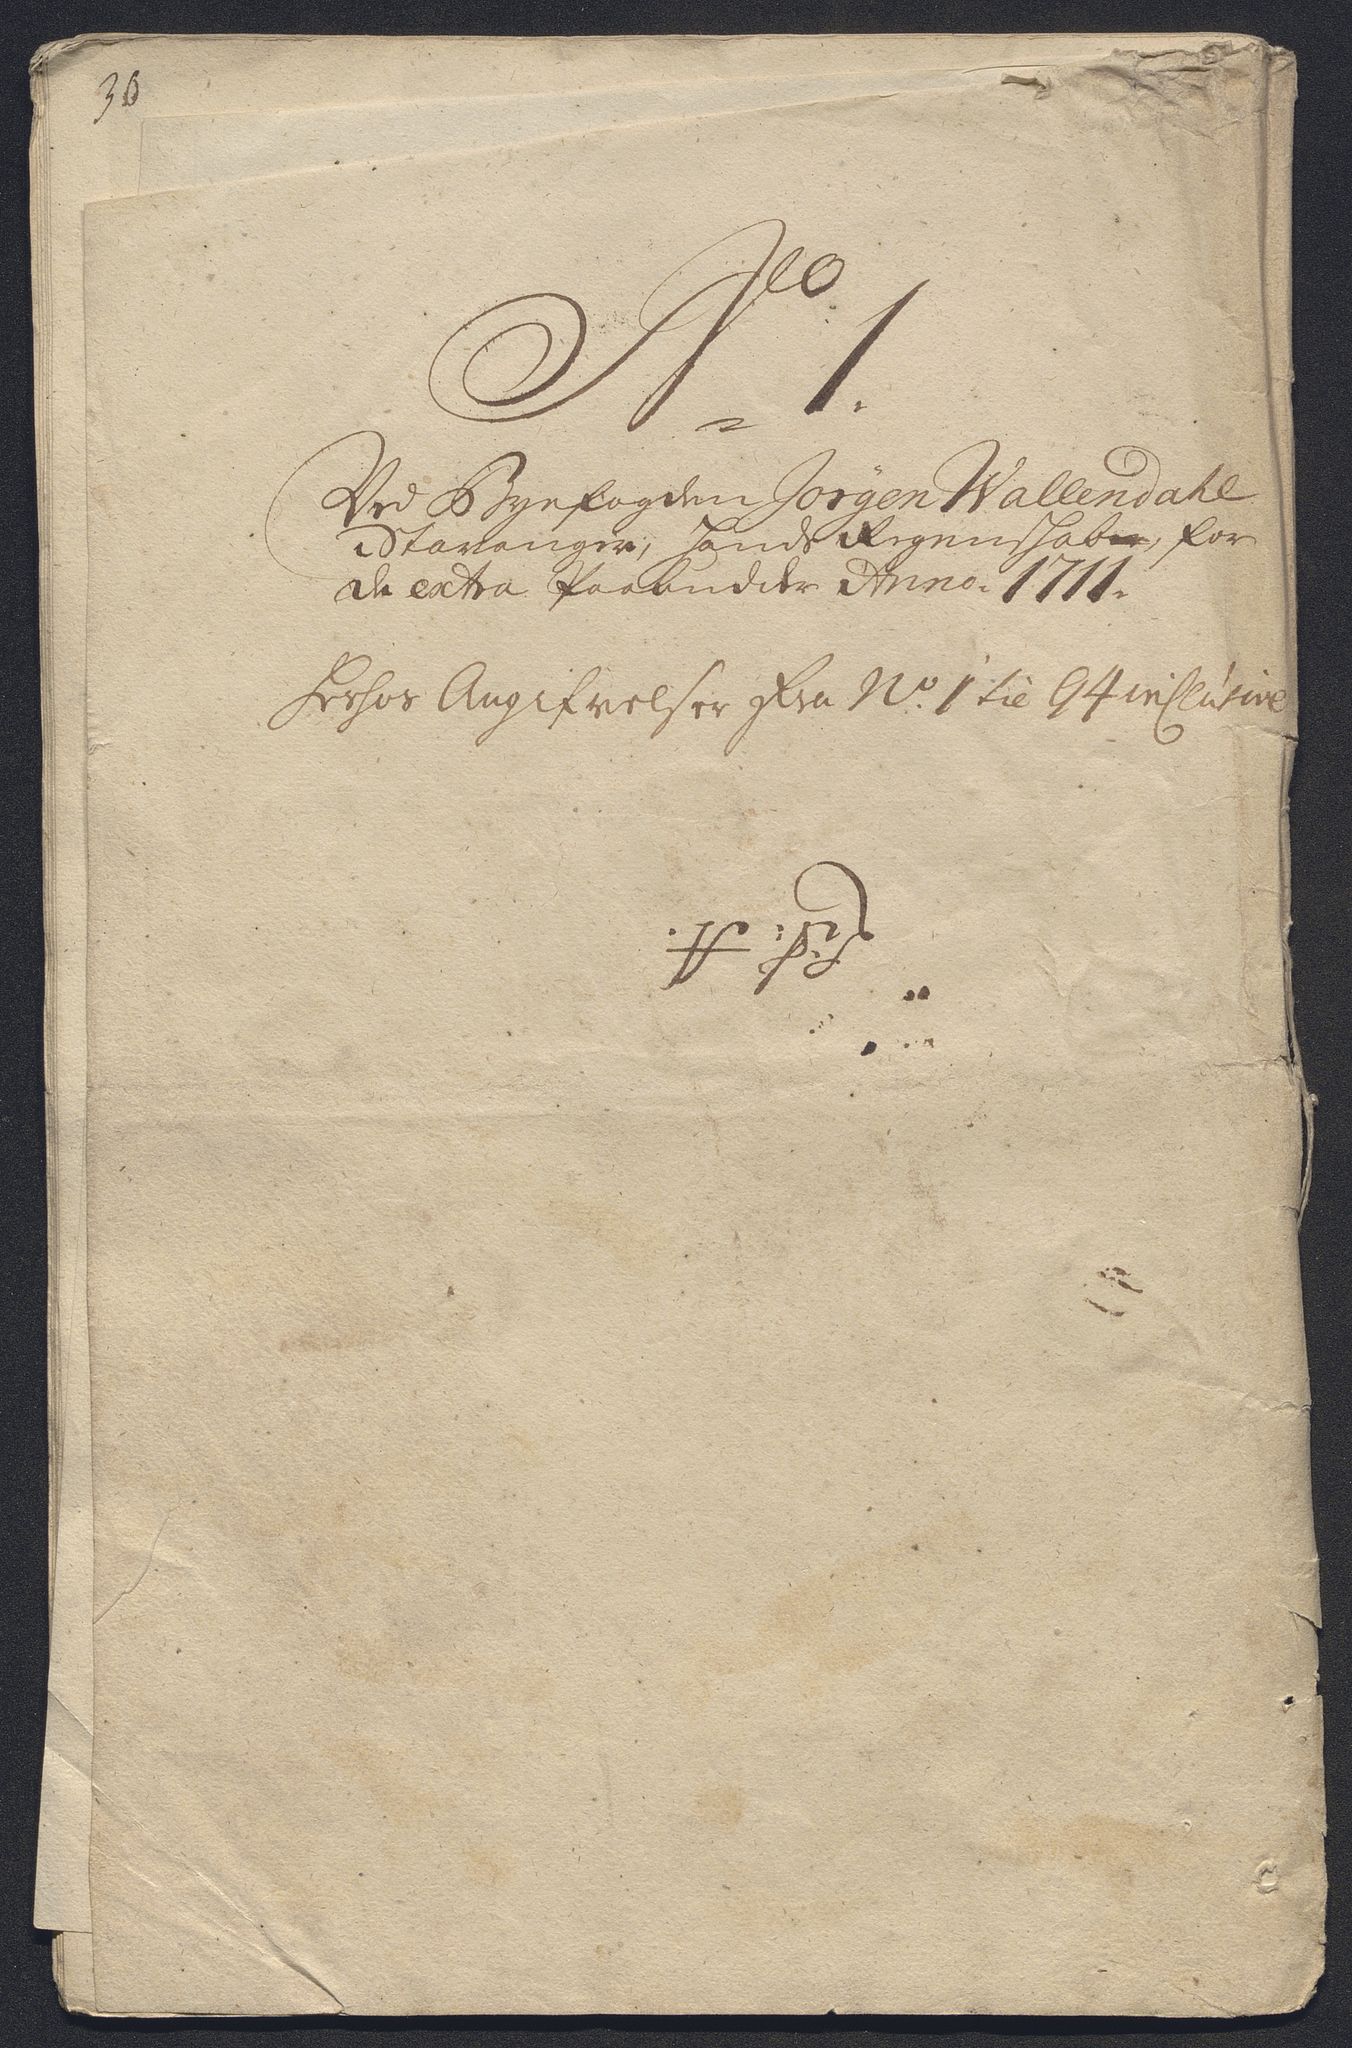 30
No 1.
Ved Byefogden Jørgen Wallendahl
i Stavanger, hands Regenskaber, for
de extra Paabudder Anno. 1711.
Herhos Angifvelser Fra No. 1 til 94 inclusive
Lid: A.